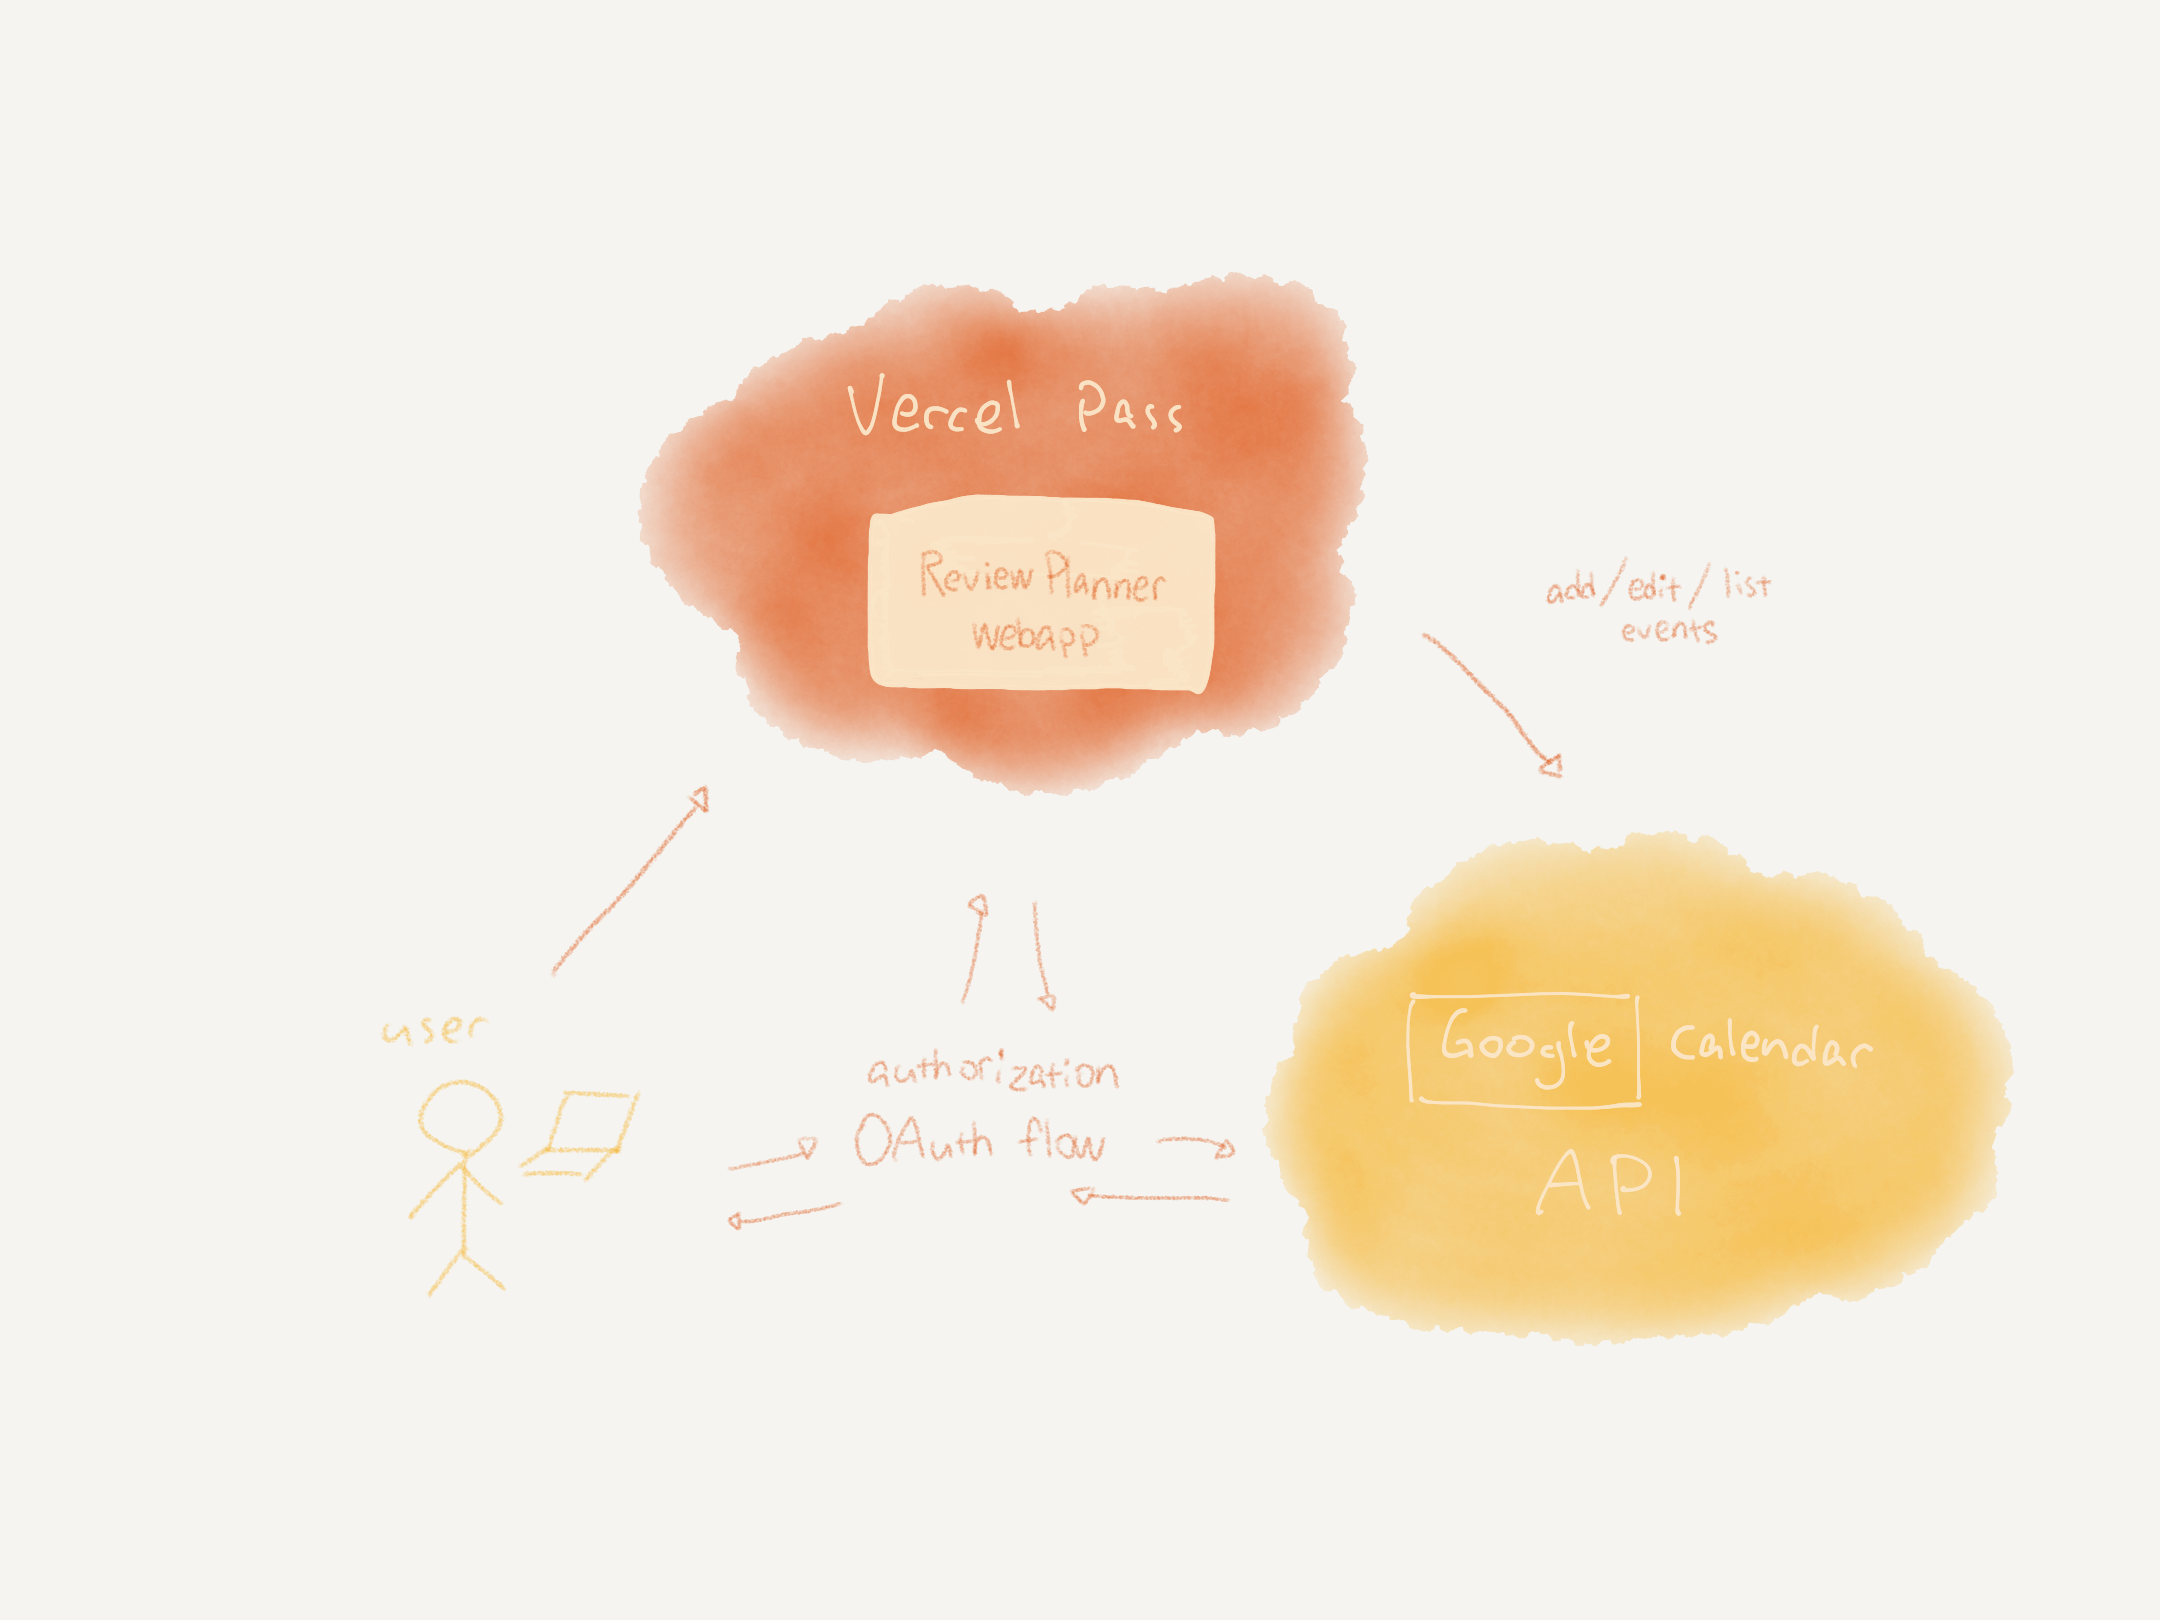 Vercel Pass
Review Planner
webapp
add/edit/list
events
user
authorization
OAuth flow
Google Calendar
API